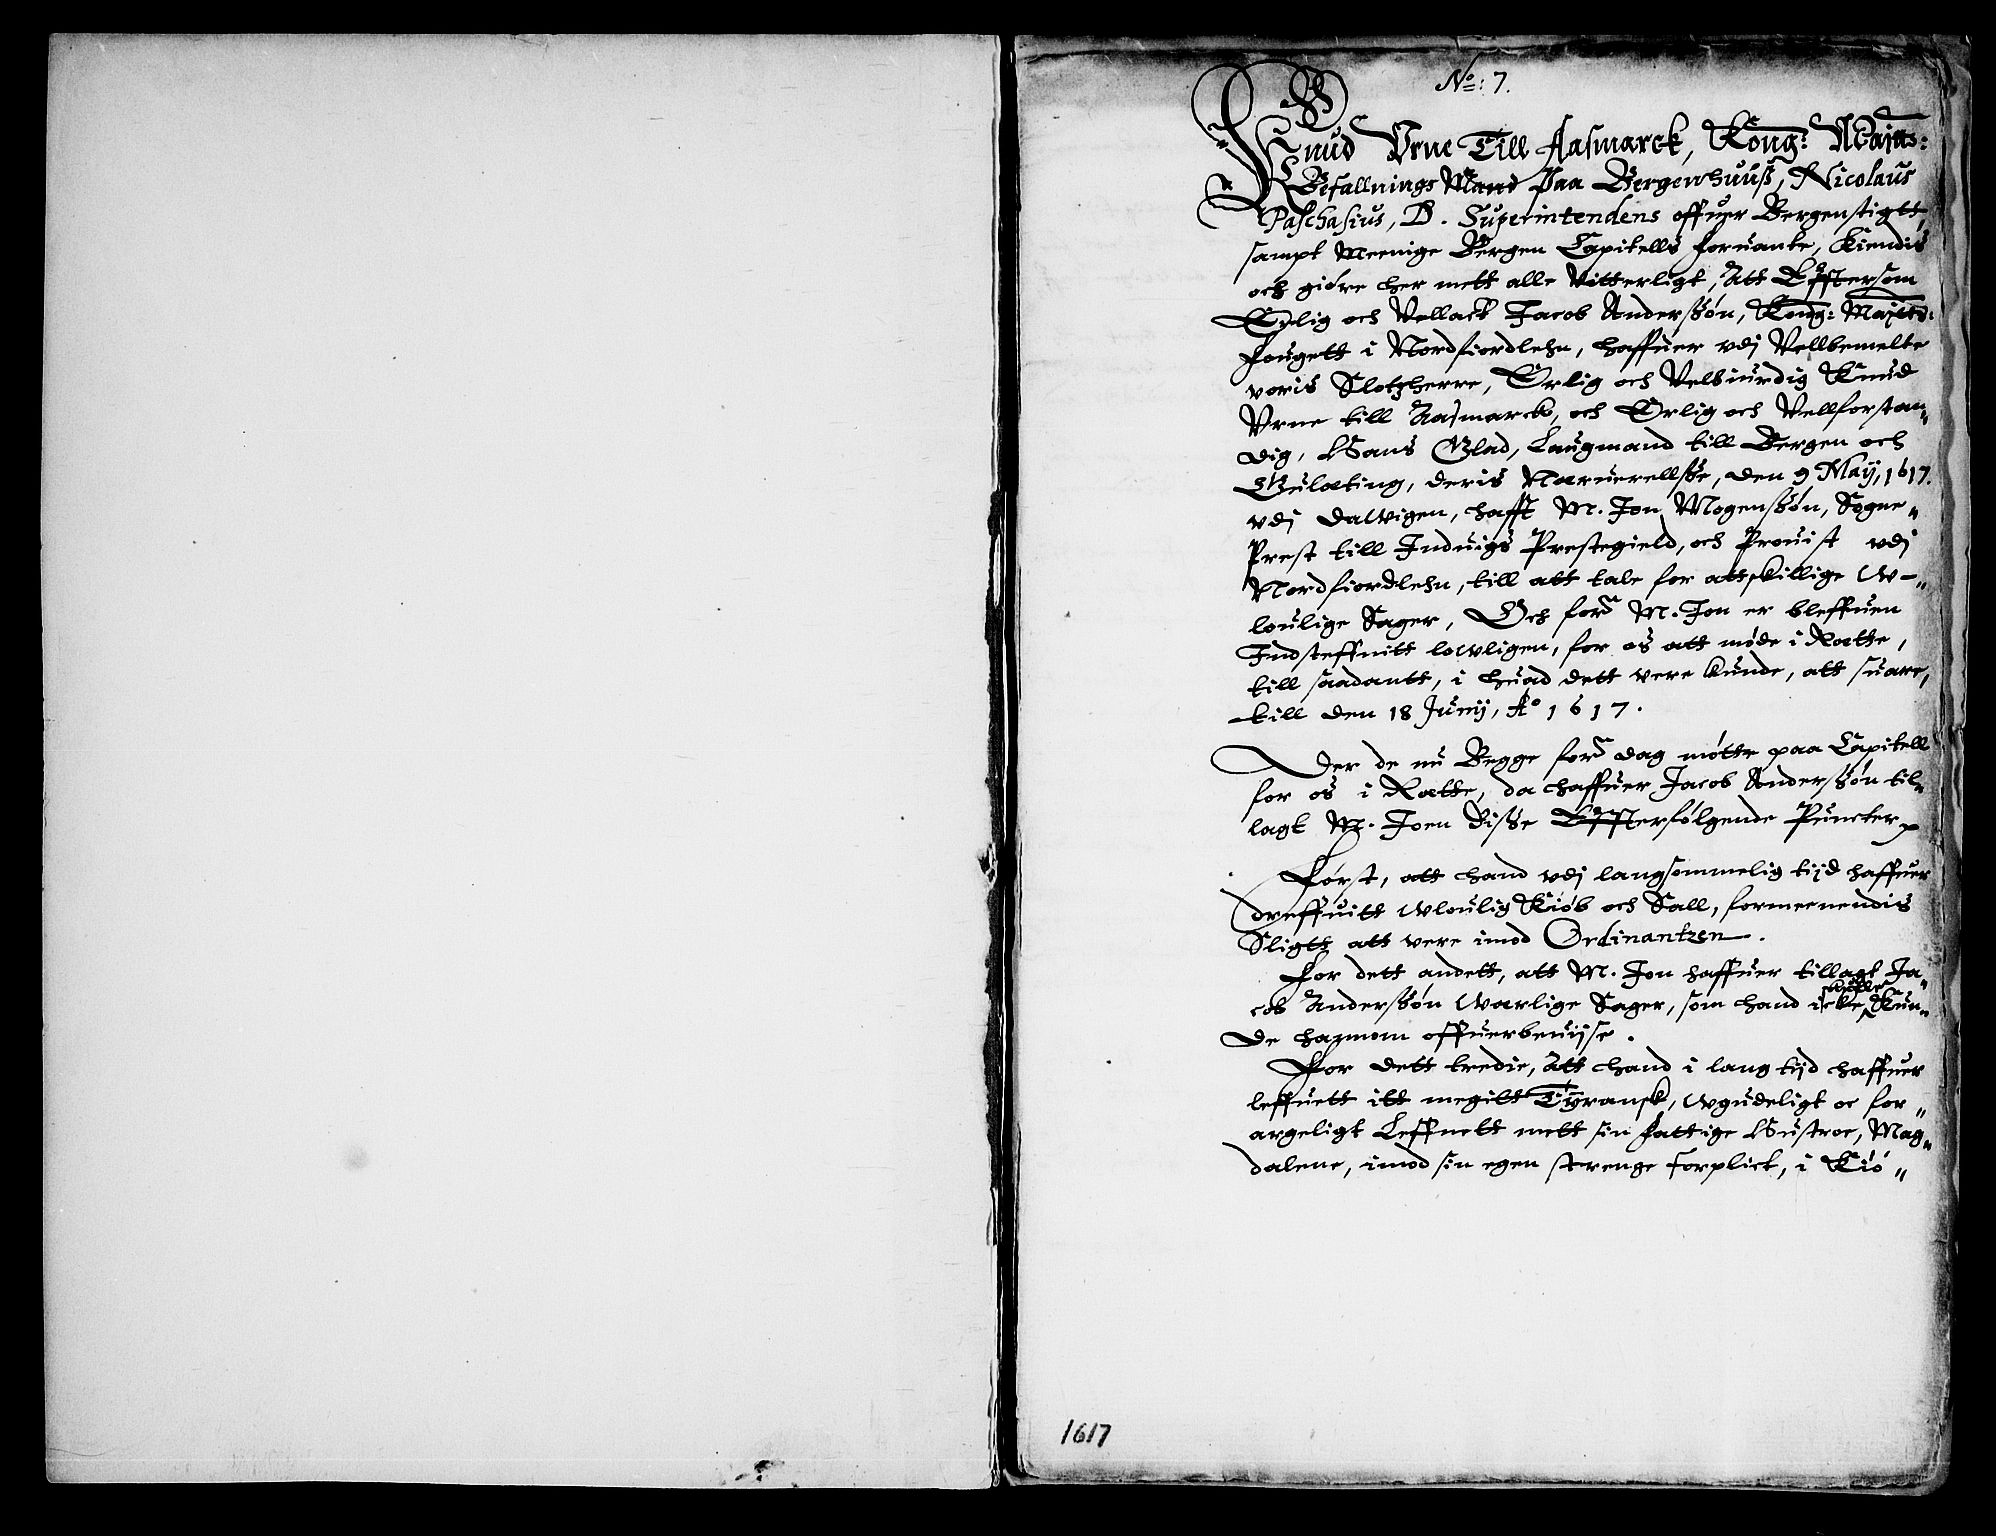 No: 7.
Knud Vrne Till Aasmarck, Kong: Mayts:
Befallnings Mand Paa Bergenhuuß, Nicolaus
Paschasius, D. Superintendens offuer Bergenstigtt
sampt Meenige Bergen Capitells foruante, Kiendis
och giöre her mett alle Vitterligt, Att Effttersom
Erlig och Vellackt Jacob Anderßøn, Kong: Mayets:
fougett i Nordfiordlehn, haffuer vdj Vellbemelte
voris Slotzherre, Erlig och Velbiurdig Knud
Vrne till Aasmarck, och Erlig och Vellforstan„
dig, Hans Glad, Laugmand till Bergen och
Gulating, deris Næruerellsse, den 9 Maij, 1617.
vdj Dalwigen, hafft M. Jon Mogenßøn, Sogne„
Prest till Induigs Prestegield, och Prouist vdj
Nordfiordlehn, till att tale for attskillige W-„
loulige Sager, Och ford M. Jon er bleffuen
Indsteffnitt lowligen, for os att møde i Rætte,
till saadantt, i huad dett vere kunde, att suare,
till den 18 Junij, Ao 1617.
Der de nu Begge ford dag møtte paa Capitell
for os i Rætte, da haffuer Jacob Anderßøn til„
lagt M. Joen Disse Effterfølgende Puncter
Først, att hand vdj langsommelig tijd haffuer
dreffuitt wloulig Kiøb och Sall, formeenendis
Sligtt att vere imod Ordinantzen.
For dett andett, att M. Jon haffuer tillagt Ja„
cob Anderßøn Wærlige Sager, som hand icke skulle Kun„
de hannom offuerbeuijse.
For dett tredie, Att hand i lang tijd haffuer
leffuett itt megitt Tyransk, wgudeligt oc for„
argeligt Leffnett mett sin fattige Hustroe, Mag„
dalene, imod sin egen strenge forplict, i Kiø„
1617